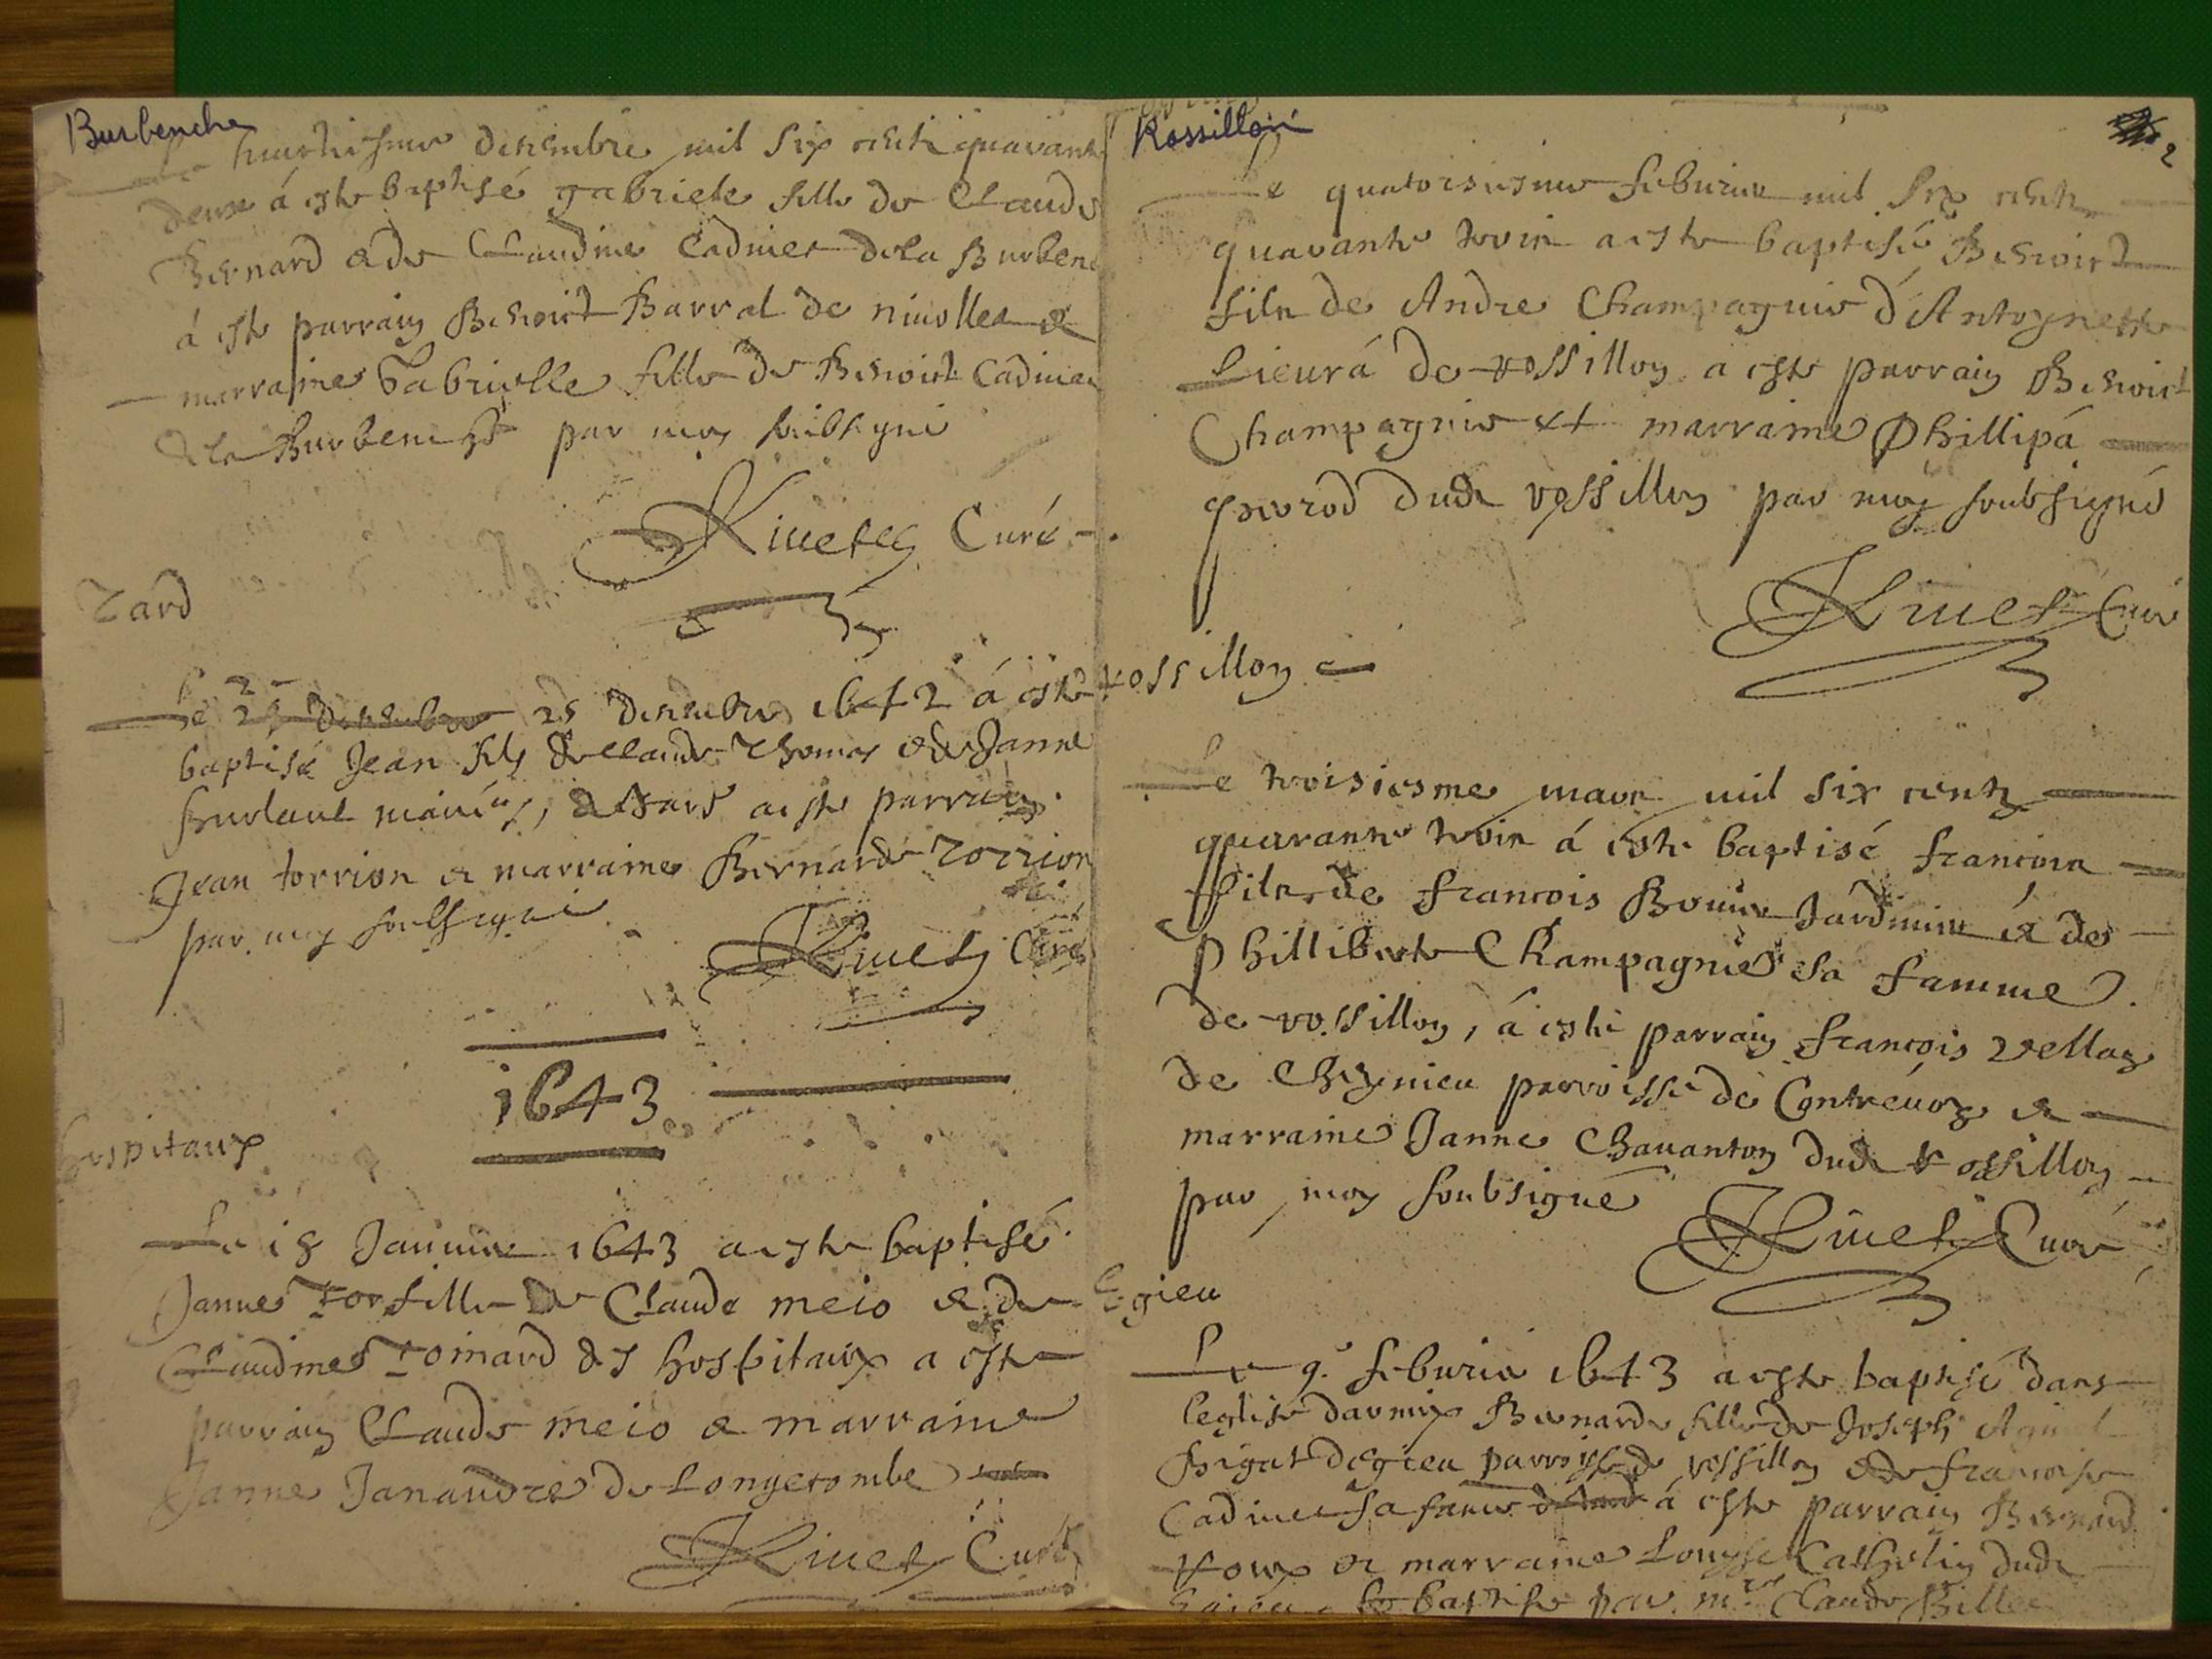 Burbenche
huictiesme decembre mil six cents quarante
deux á esté baptisé gabriele fille de Claude
Bernard & de Claudine Cadinet de la Burben
á esté parrain Benoist Barral de &
marraine Gabrielle fille de Benoict Cadinet
de la par moy soubsigné
Rivet Curé
Tard
Le 25 decembre 25 decembre 1642 á esté
baptisé Jean fils de Claude Thomas & de Janne
mariés, de tard a esté parrain
Jean torrion & marraine Bernarde Torrion
par moy soubsigné
Rivet Curé
1643
hospitaux
Le 18 Janvier 1643 a esté baptisé
Janne fille de Claude meio & de
Claudine des hospitaux a esté
parrain Claude meio & marraine
Janne de Longecombe
Rivet Curé
Rossillon
2
Le quatorsiesme febvrier mil six cents
quarante trois a esté baptisé Benoist
fils de Andre Champagnie d'Antoynette
Lieurá de rossillon a esté parrain Benoist
Champagnie et marraine Phillipá
dud rossillon par moy soubsigné
Rivet Curé
rossillon
Le troisiesme mars mil six cents
quarante trois á esté baptisé francois
fils de francois Jardinier & de
Philliberte Champagnie sa famme
de rossillon, á esté parrain francois vellaz
de Cheynieu parroisse de Contrevoz &
marraine Janne Chavanton dud rossillon
par moy soubsigné
Rivet Curé
Egieu
Le 9e febvrier 1643 a esté baptisé dans
leglise darmix Bernarde fille de Joseph
degieu parroisse de rossillon & de francoise
Cadinet sa fame á esté parrain Bernard
roux & marraine Louyse Catherin dud
Egieu baptisée par mre Claude